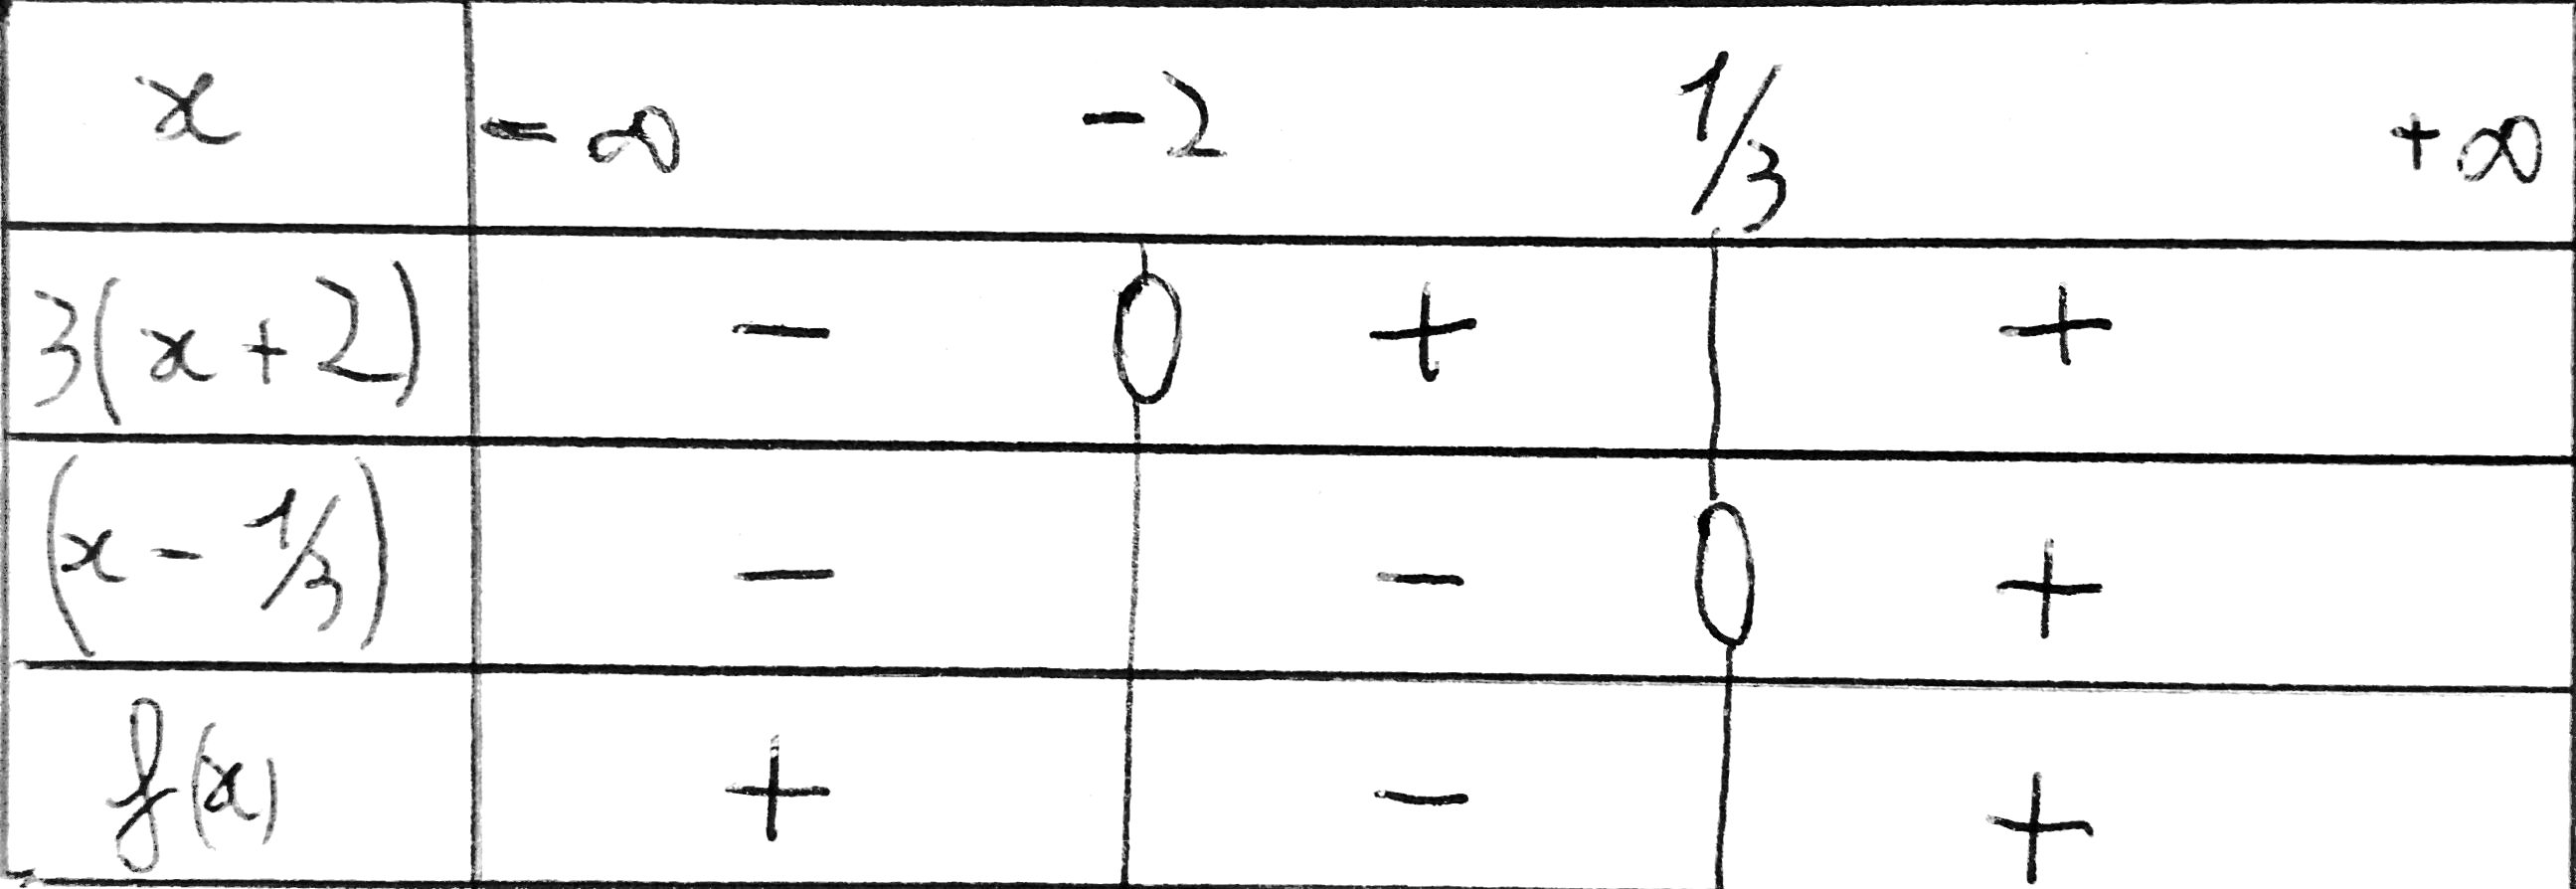 x -∞ -2 1/3 +∞
3(x+2) - 0 + +
(x - 1/3) - - 0 +
f(x) + - +